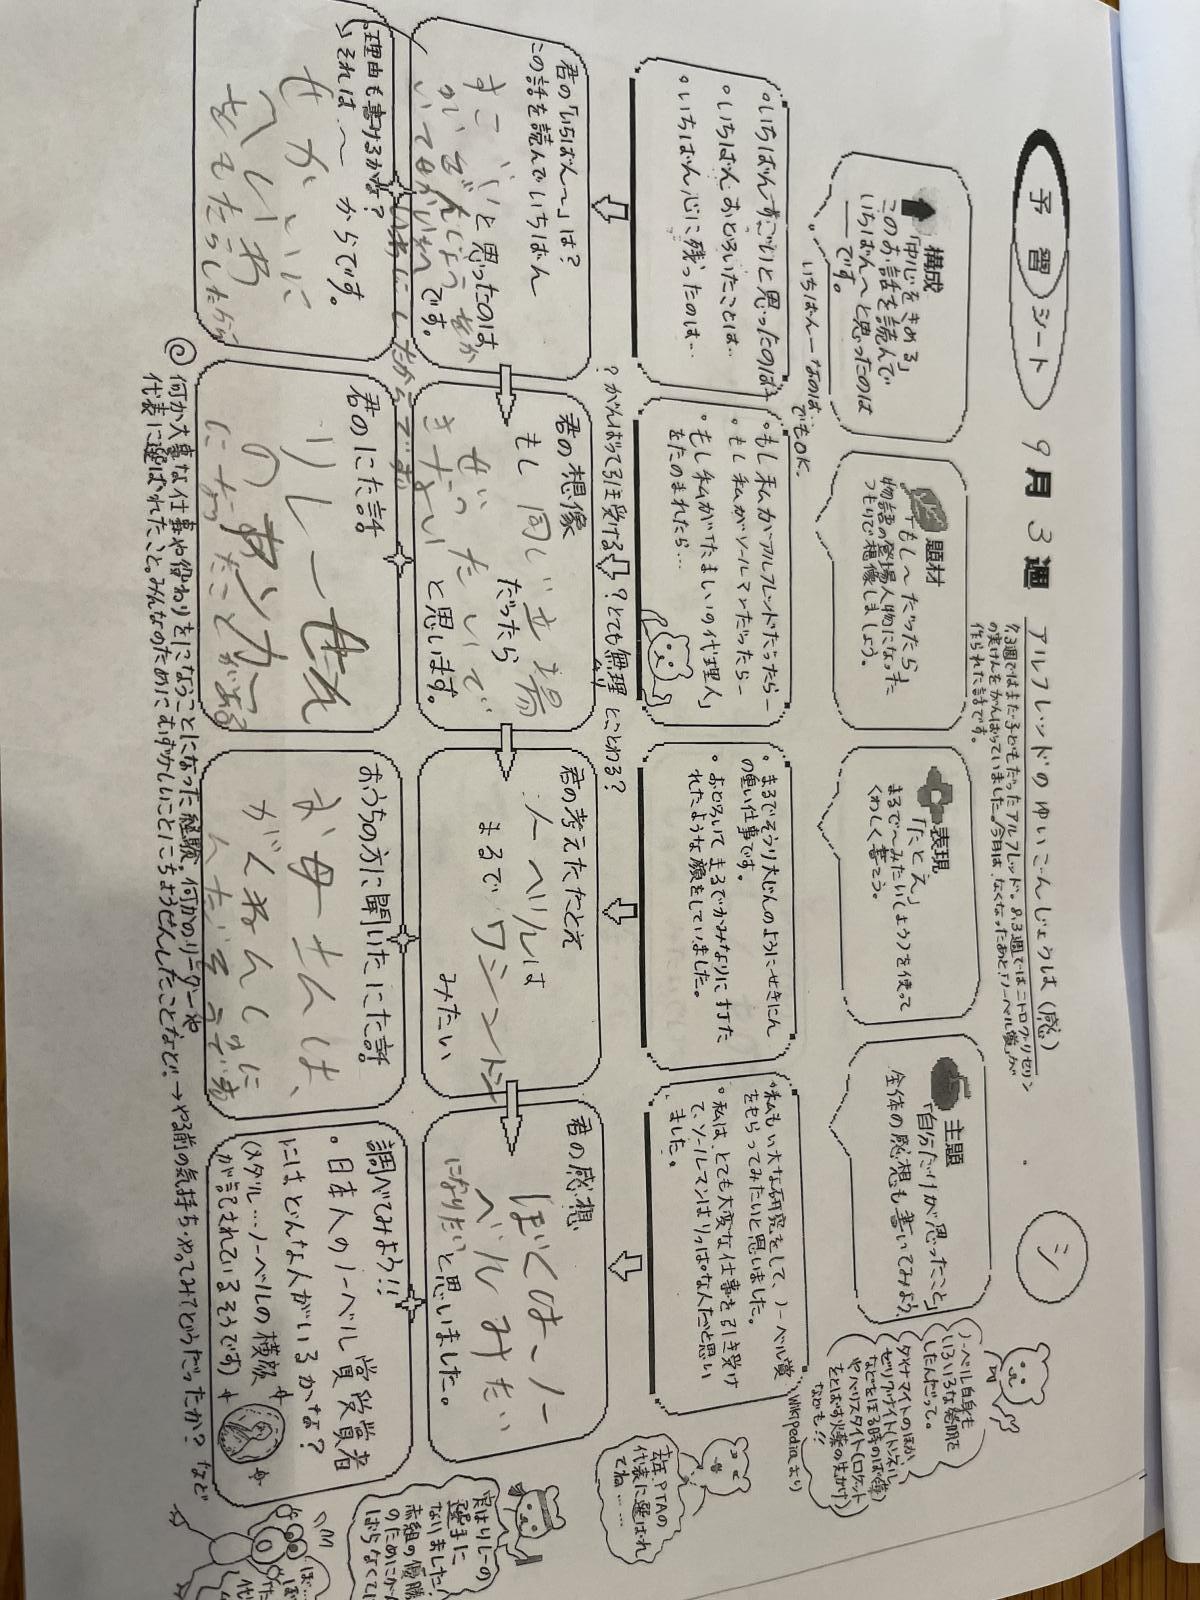 予習シート 9月3週 アルフレッドのゆいごんじょうは(感)
シ
7.3週ではまだ子どもだったアルフレッド。8.3週ではニトログリセリン
の実けんをがんばっていました。今月は、なくなったあと「ノーベル賞」が
作られた話です。
構成
「中心をきめる」
このお話を読んで
いちばん〜と思ったのは
です。
いちばん―なのは…
でもOK。
題材
「もし〜だったら」
物語の登場人物になった
つもりで想像しましょう。
表現
「たとえ」
まるで〜みたい(よう)を使って
くわしく書こう。
主題
「自分だけが思ったこと」
全体の感想も書いてみよう。
ノーベル自身も
いろいろな発明を
したんだって。
ダイナマイトのほか
ゼリグナイト(トンネル
などをほる時のばく薬)
やバリスタイト(ロケット
をとばす火薬の先がけ)
なども!!
Wikipediaより
・いちばんすごいと思ったのは…
・いちばんおどろいたことは…
・いちばん心に残ったのは…
・もし私がアルフレッドだったら―
・もし私がソールマンだったら―
・もし私が「たましいの代理人」
をたのまれたら…
?がんばって引き受ける?とても無理とことわる?
・まるでそうり大じんのようにせきにん
の重い仕事です。
・おどろいてまるでかみなりに打た
れたような顔をしていました。
・私もい大な研究をして、ノーベル賞
をもらってみたいと思いました。
・私は、とても大変な仕事を引き受け
て、ソールマンはりっぱな人だと思い
ました。
去年、PTAの
代表に選ばれ
てね……
君の「いちばん〜」は?
この話を読んでいちばん
すごいと思ったのは
です。
理由も書けるかな?
それは、〜からです。
せかいに
へいわ
君の想像
もし同じ立場
だったら
ぜったいで
きない
と思います。
君の考えたたとえ
ノーベルは
まるでワシントン
みたい
君の感想
ぼくはノー
ベルみたい
になりたいと思いました。
君のにた話
リレーせん
のアンカー
になったことがある
おうちの方に聞いたにた話
お母さんは、
調べてみよう!!
・日本人のノーベル賞受賞者
にはどんな人がいるかな?
(メダル…ノーベルの横顔
が記されているそうです)
実はリレーの
選手に
なりました!
赤組の優勝
のためにがん
ばらなくては
◎何か大事な仕事や役わりをになうことになった経験、何かのリーダーや
代表に選ばれたこと。みんなのためにむずかしいことにちょうせんしたことなど。→やる前の気持ち・やってみてどうだったか?など